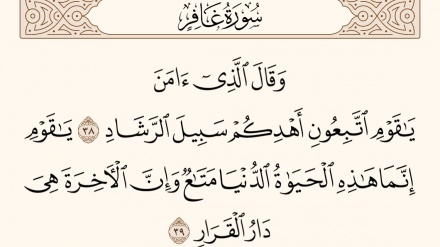 سُورَةُ غَافِرٍ
وَقَالَ ٱلَّذِىٓ ءَامَنَ
يَٰقَوْمِ ٱتَّبِعُونِ أَهْدِكُمْ سَبِيلَ ٱلرَّشَادِ ٣٨ يَٰقَوْمِ
إِنَّمَا هَٰذِهِ ٱلْحَيَوٰةُ ٱلدُّنْيَا مَتَٰعٌ وَإِنَّ ٱلْأَخِرَةَ هِىَ
دَارُ ٱلْقَرَارِ ٣٩